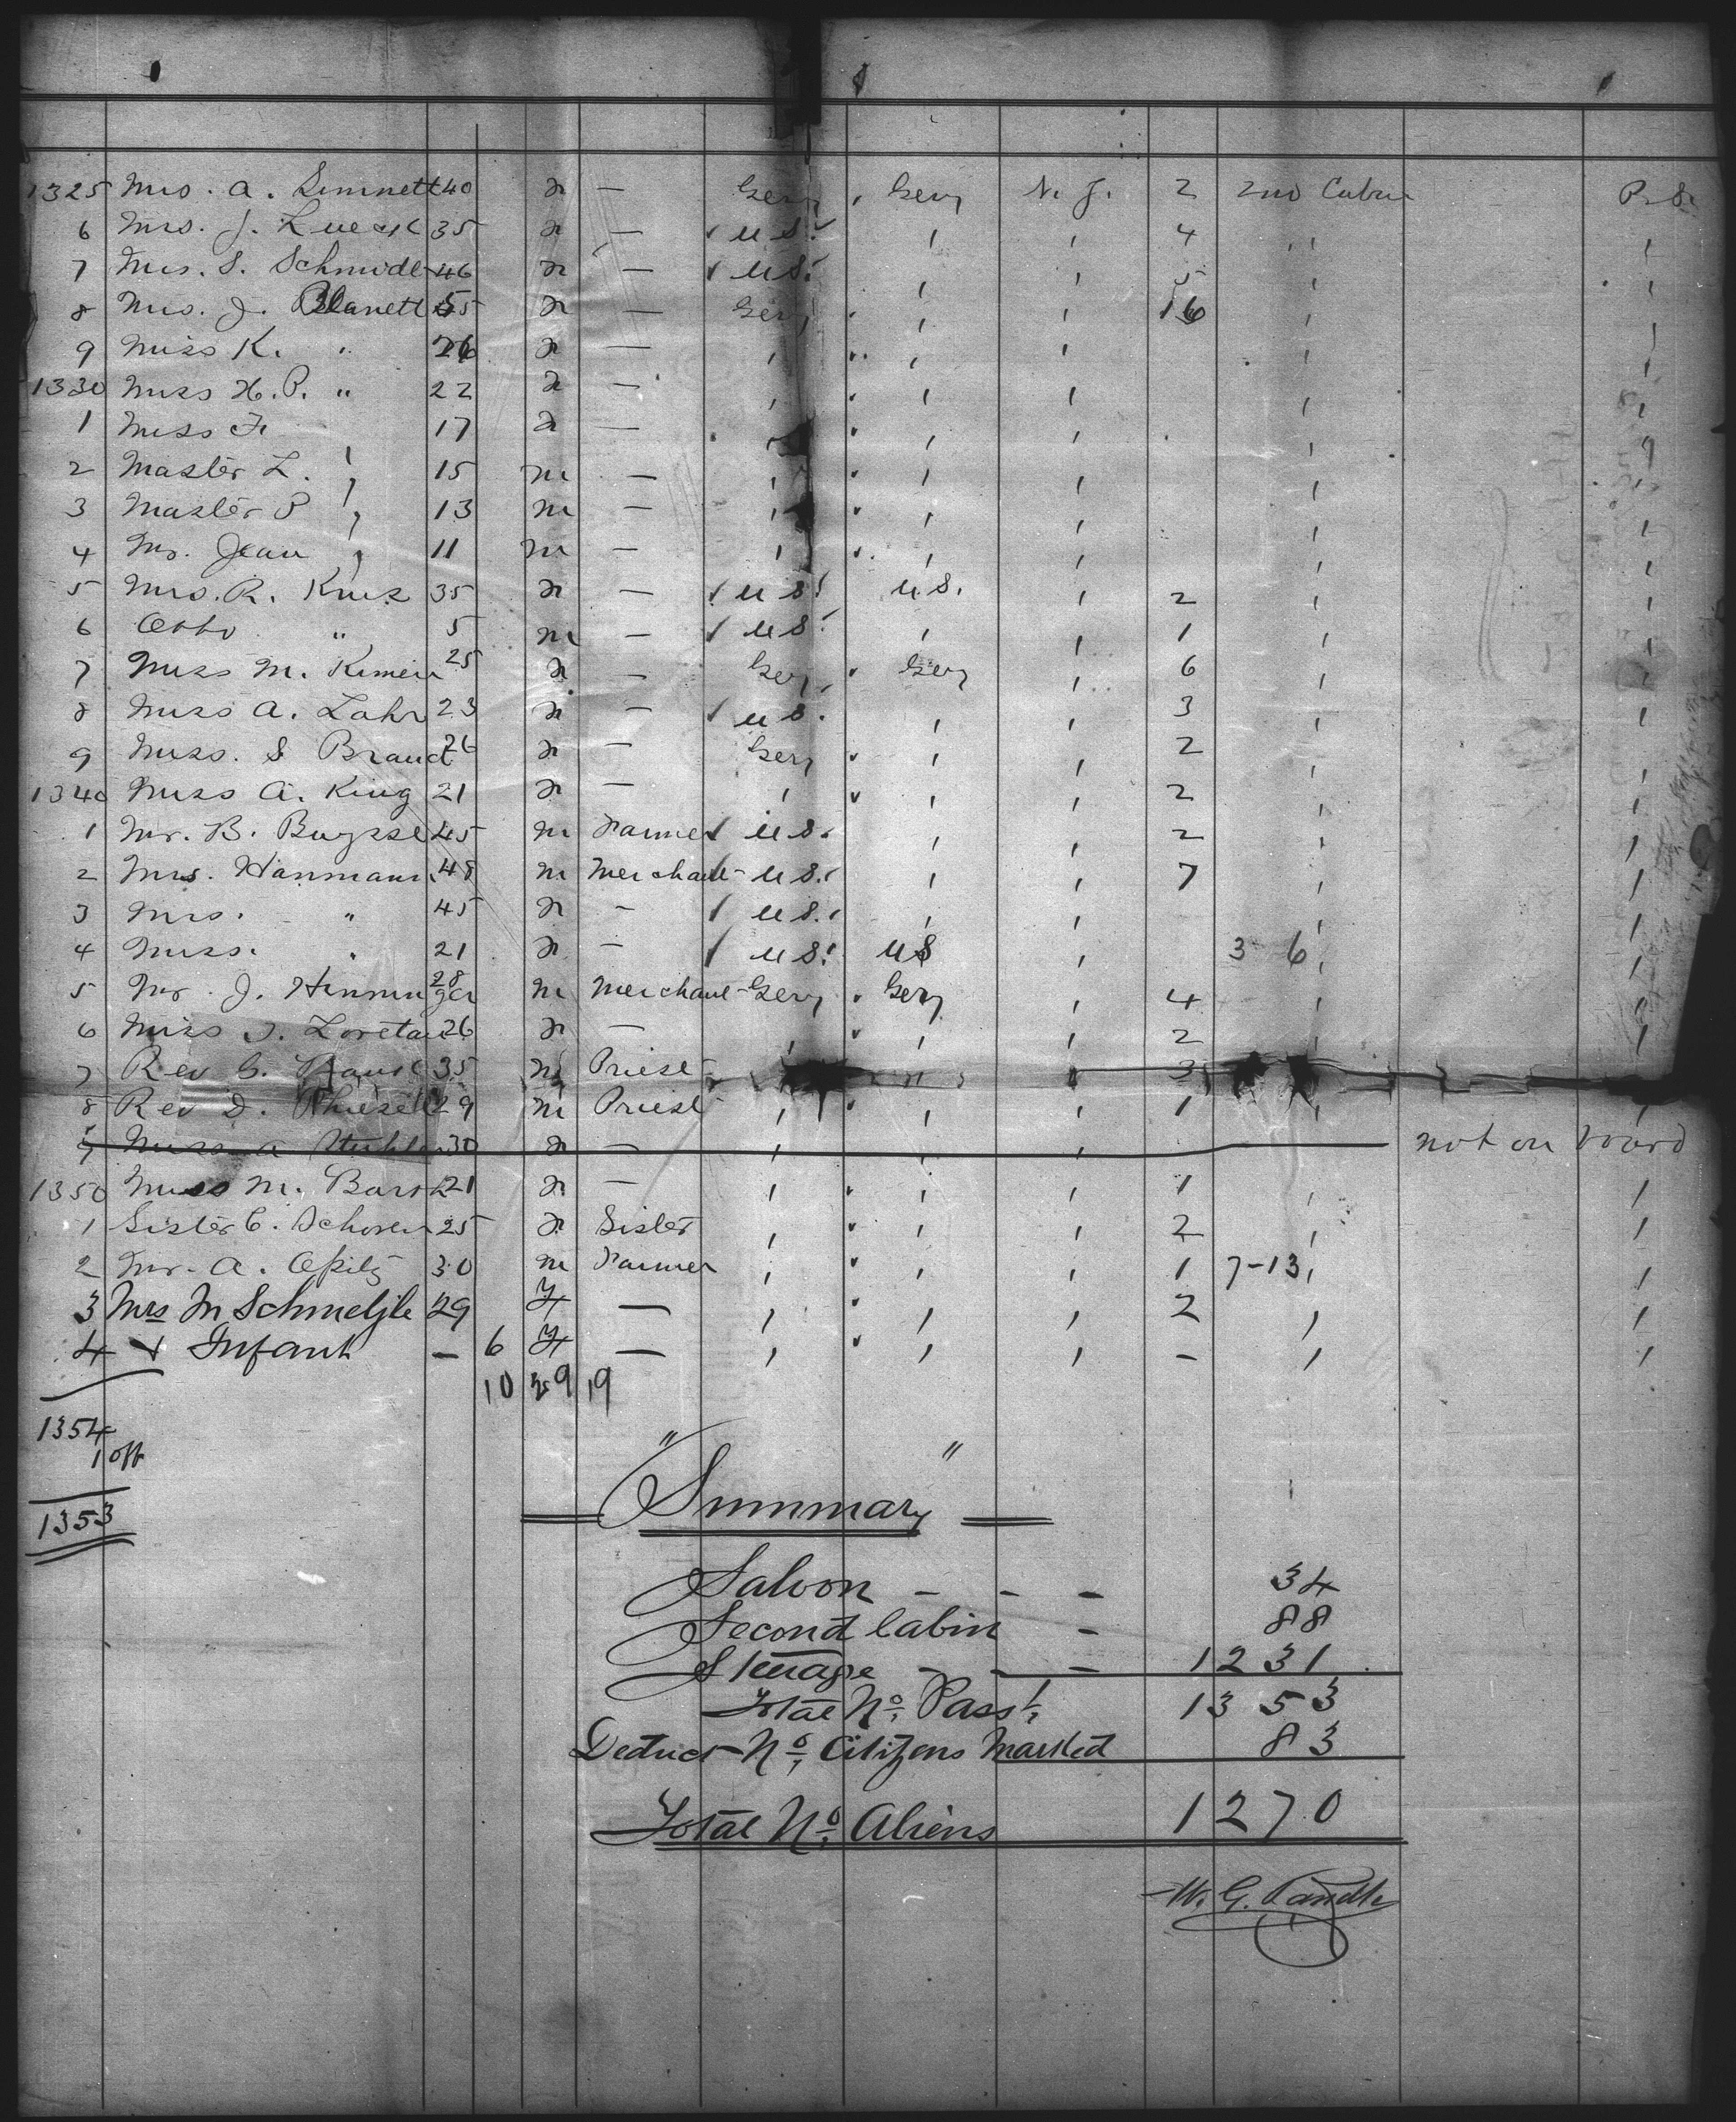 1325 Mrs. A. Simnett 40 f — Gery , Gery N. J. 2 2nd Cabin P. S.
6 Mrs. J. Lueck 35 f — U S. ' ' 4 " '
7 Mrs. S. Schmidt 46 f — U S. ' ' 5 ' '
8 Mrs. J. Blanett 55 f — Gery ' ' 16 ' '
9 Miss K. " 26 f — ' ' ' ' '
1330 Miss H. P. " 22 f — ' ' ' ' '
1 Miss F. 17 f — ' ' ' ' '
2 Master L. ' 15 m — ' ' ' ' '
3 Master P ' 13 m — ' ' ' ' '
4 Mr. Jean ' 11 m — ' ' ' ' '
5 Mrs. R. 35 f — U S. U.S. ' 2 ' '
6 Otto " 5 m — U S. ' ' 1 ' '
7 Miss M. 25 f — Gery Gery ' 6 ' '
8 Miss A. Lahr 23 f — U S. ' ' 3 ' '
9 Miss. S Brand 26 f — Gery ' ' 2 ' '
1340 Miss A. King 21 f — ' ' ' 2 ' '
1 Mr. B. Buysse 45 m Farmer U S. ' ' 2 ' '
2 Mr. Hanmann 48 m Merchant U S. ' ' 7 ' '
3 Mrs. " 45 f - U S. ' ' ' '
4 Miss. " 21 f - U S. U S ' 3 6 ' '
5 Mr. J. Henninger 28 m Merchant Gery Gery ' 4 ' '
6 Miss J. Loretan 26 f — ' ' ' 2 ' '
7 Rev C. 35 m Priest ' ' ' 3 ' '
8 Rev D. 29 m Priest ' ' ' 1 ' '
9 Miss A 30 f — ' ' ' not on board
1350 Miss M. Barth 21 f — ' ' ' 1 ' '
1 Sister C. 25 f Sister ' ' ' 2 ' '
2 Mr. A. Opitz 30 m Farmer ' ' ' 1 7-13 ' '
3 Mrs M Schmeljle 29 F — ' ' ' 2 ' '
4 + Infant — 6 F — ' ' ' - ' '
10 9 19
1354
1 off
1353
"Summary"
Saloon - - - 34
Second Cabin - 88
Steerage - - - 1231
Total No. Pass. 1353
Deduct No. Citizens Marked 83
Total No. Aliens 1270
W. G. Randle